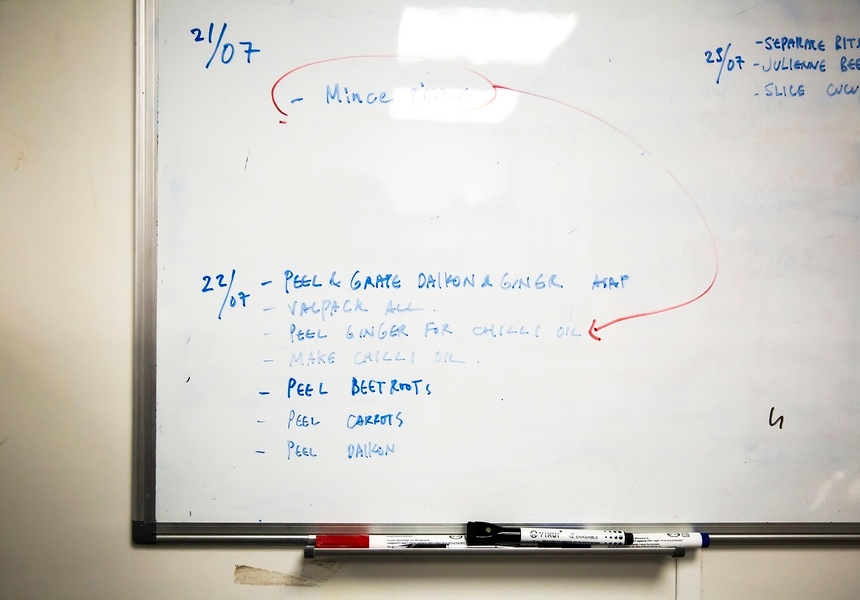 21/07
- Mince
22/07
- PEEL & GRATE DAIKON & GINER ASAP
- VACPACK ALL.
- PEEL GINGER FOR CHILLI OIL
- MAKE CHILLI OIL.
- PEEL BEETROOTS
- PEEL CARROTS
- PEEL DAIKON
23/07
- SEPARATE BITS
- JULIENNE BEE
- SLICE CUCU
4
YIHUI ERASABLE